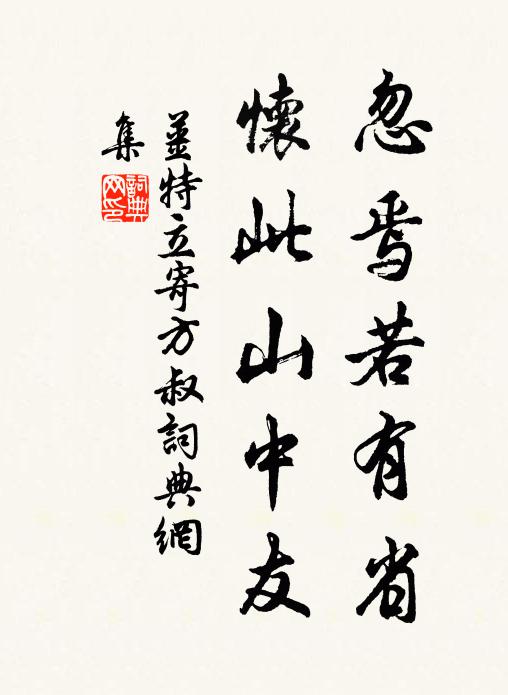 忽焉若有省
懷此山中友
姜特立寄方叔詞典網
集
詞典
网印